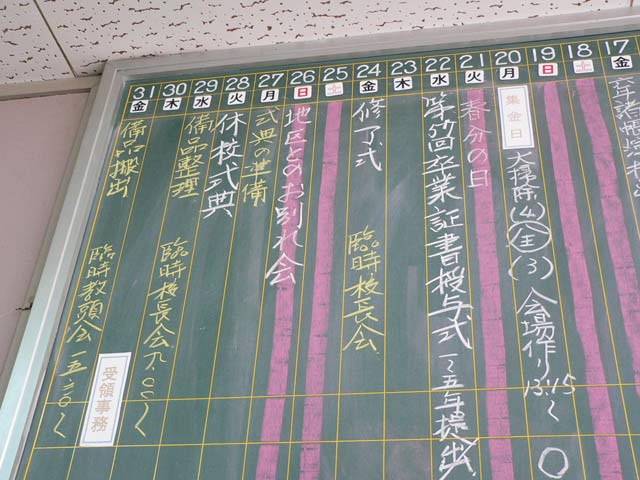 17
金
18
土
19
日
20
月
集金日
大掃除(4)(全)(3) 会場作り 13:15~
21
火
春分の日
22
水
第57回卒業証書授与式 一~五年提出
23
木
24
金
修了式
臨時校長会
25
土
26
日
地区とのお別れ会
27
月
式典の準備
28
火
休校式典
29
水
備品整理
30
木
臨時校長会
31
金
備品搬出
臨時教頭会
受領事務